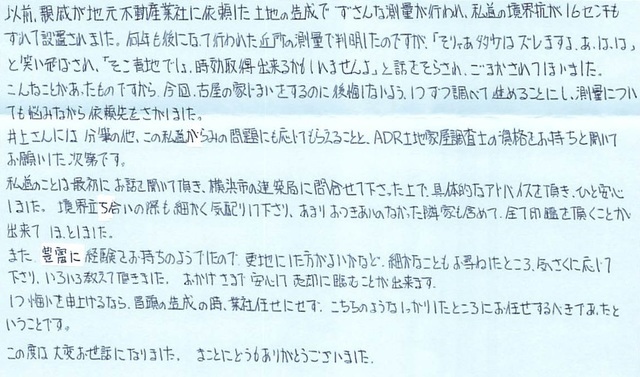 以前、親戚が地元不動産業社に依頼した土地の造成で ずさんな測量が行われ、私道の境界杭が16センチも
ずれて設置されました。何年も後になって行われた近所の測量で判明したのですが、「そりゃあ多少はズレますよ、あ、は、は」
と笑い飛ばされ、「そこ青地でしょ、時効取得出来るかもしれませんよ」と話をそらされ、ごまかされてしまいました。
こんなことがあったものですから、今回、古屋の家じまいをするのに後悔しないよう、1つずつ調べて進めることにし、測量につい
ても悩みながら依頼先をさがしました。
井上さんには 分筆の他、この私道がらみの問題にも応じてもらえることと、ADR土地家屋調査士の資格をお持ちと聞いて
お願いした次第です。
私道のことは最初に お話を聞いて頂き、横浜市の建築局に問合せて下さった上で、具体的なアドバイスを頂き、ひと安心
しました。 境界立ち合いの際も細かく気配りして下さり、あまりおつきあいのなかった隣家も含めて、全て印鑑を頂くことが
出来て ほっとしました。
また、豊富に 経験をお持ちのようでしたので、更地にした方がよいかなど、細かなこともお尋ねしたところ、気さくに応じて
下さり、いろいろ教えて頂きました。 おかげさまで 安心して 売却に臨むことが出来ます。
1つ悔いを申上げるなら、冒頭の造成の時、業社任せにせず、こちらのようなしっかりしたところにお任せするべきであったと
いうことです。
この度は 大変お世話になりました。 まことにどうもありがとうございました。